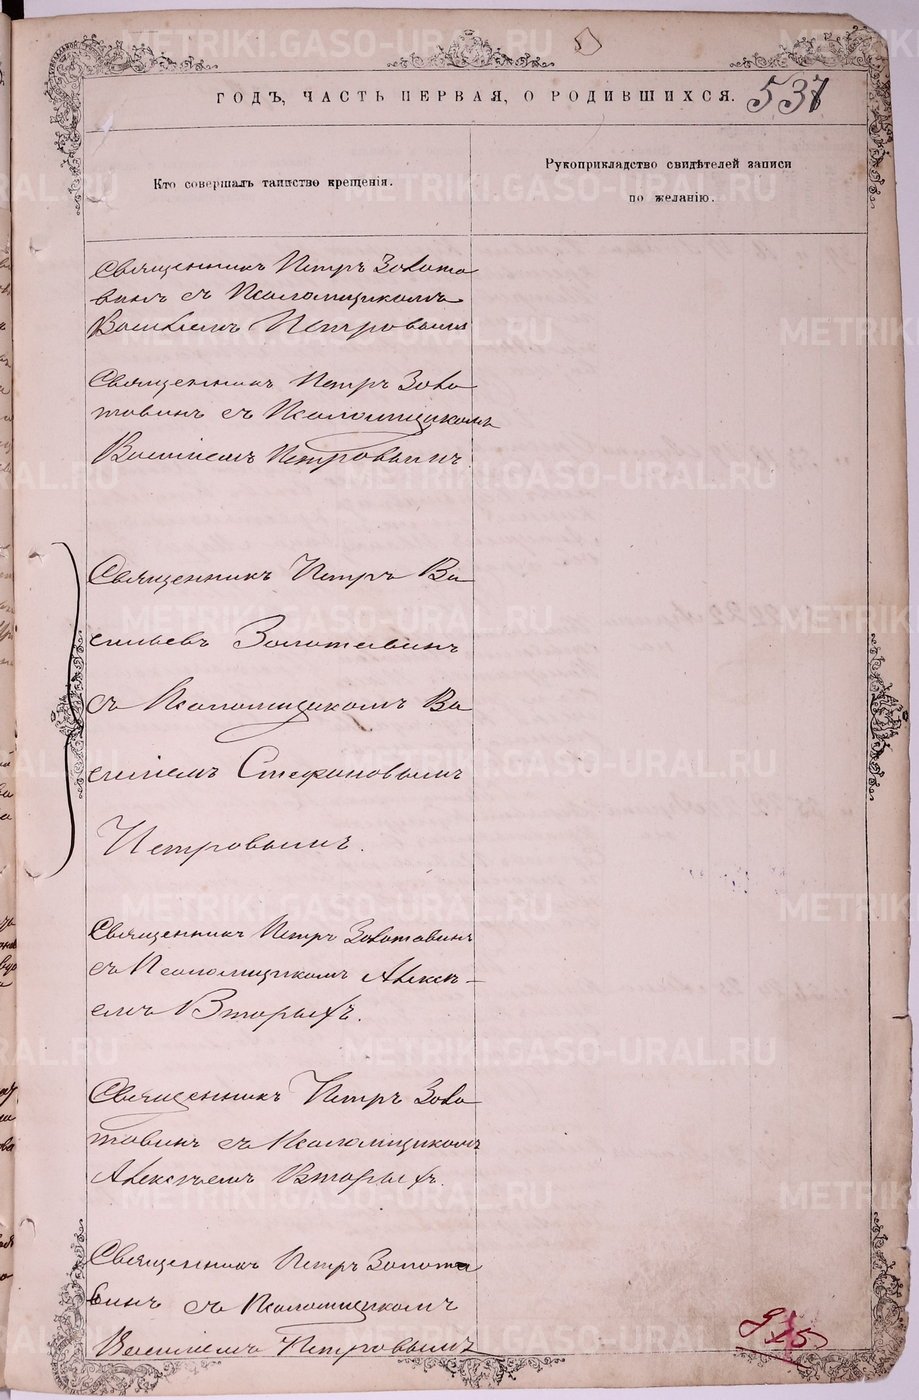 ГОДЪ, ЧАСТЬ ПЕРВАЯ, О РОДИВШИХСЯ. 537
Кто совершалъ таинство крещенія.
Рукоприкладство свидѣтелей записи
по желанію.
Священникъ Петръ Золота
винъ съ Псаломщикомъ
Василіемъ Петровымъ
Священникъ Петръ Золо
тавинъ съ Псаломщикомъ
Василіемъ Петровымъ
Священникъ Петръ Ва
сильевъ Золотавинъ
съ Псаломщикомъ Ва
силіемъ Стефановымъ
Петровымъ.
Священникъ Петръ Золотавинъ
съ Псаломщикомъ Алексѣ-
емъ Вторыхъ.
Священникъ Петръ Золо
тавинъ съ Псаломщикомъ
Алексѣемъ Вторыхъ.
Священникъ Петръ Золота
винъ съ Псаломщикомъ
Василіемъ Петровымъ
METRIKI.GASO-URAL.RU